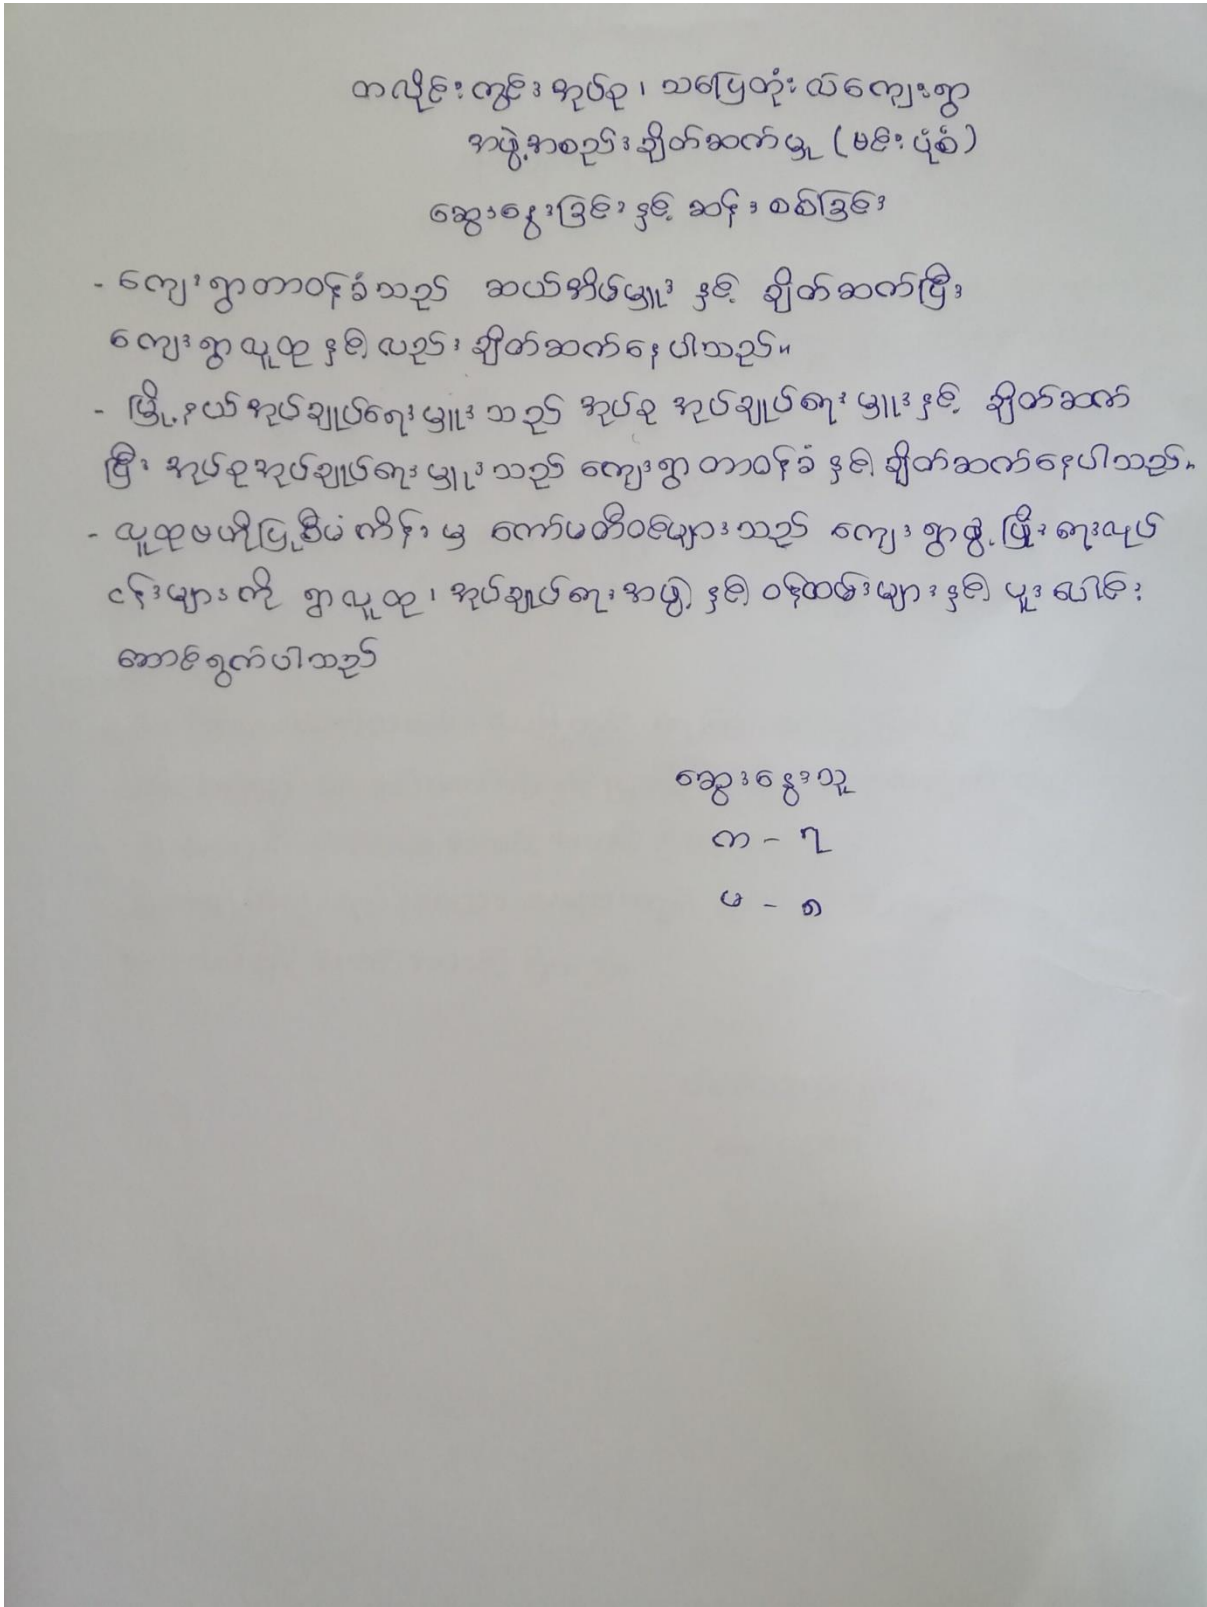 တလိုင်းကွင်းအုပ်စု၊ သပြေတုံးလ်ကျေးရွာ
အဖွဲ့အစည်းချိတ်ဆက်မှု (မင်းပုံစံ)
ဆွေးနွေးခြင်းနှင့် ဆန်းစစ်ခြင်း
- ကျေးရွာတာဝန်ခံသည် ဆယ်အိမ်မှူးနှင့် ချိတ်ဆက်ပြီး
ကျေးရွာလူထုနှင့်လည်း ချိတ်ဆက်နေပါသည်။
- မြို့နယ်အုပ်ချုပ်ရေးမှူးသည် အုပ်စု အုပ်ချုပ်ရေးမှူးနှင့် ချိတ်ဆက်
ပြီး အုပ်စုအုပ်ချုပ်ရေးမှူးသည် ကျေးရွာတာဝန်ခံနှင့် ချိတ်ဆက်နေပါသည်။
- လူထုဗဟိုပြုစီမံကိန်းမှ ကော်မတီဝင်များသည် ကျေးရွာဖွံ့ဖြိုးရေးလုပ်
ငန်းများကို ရွာလူထု၊ အုပ်ချုပ်ရေးအဖွဲ့နှင့် ဝန်ထမ်းများနှင့် ပူးပေါင်း
ဆောင်ရွက်ပါသည်
ဆွေးနွေးသူ
က - ၇
မ - ၈